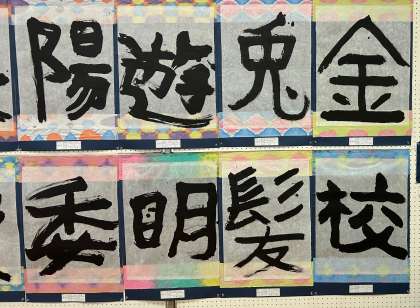 陽 遊 兎 金
委 明 髪 校